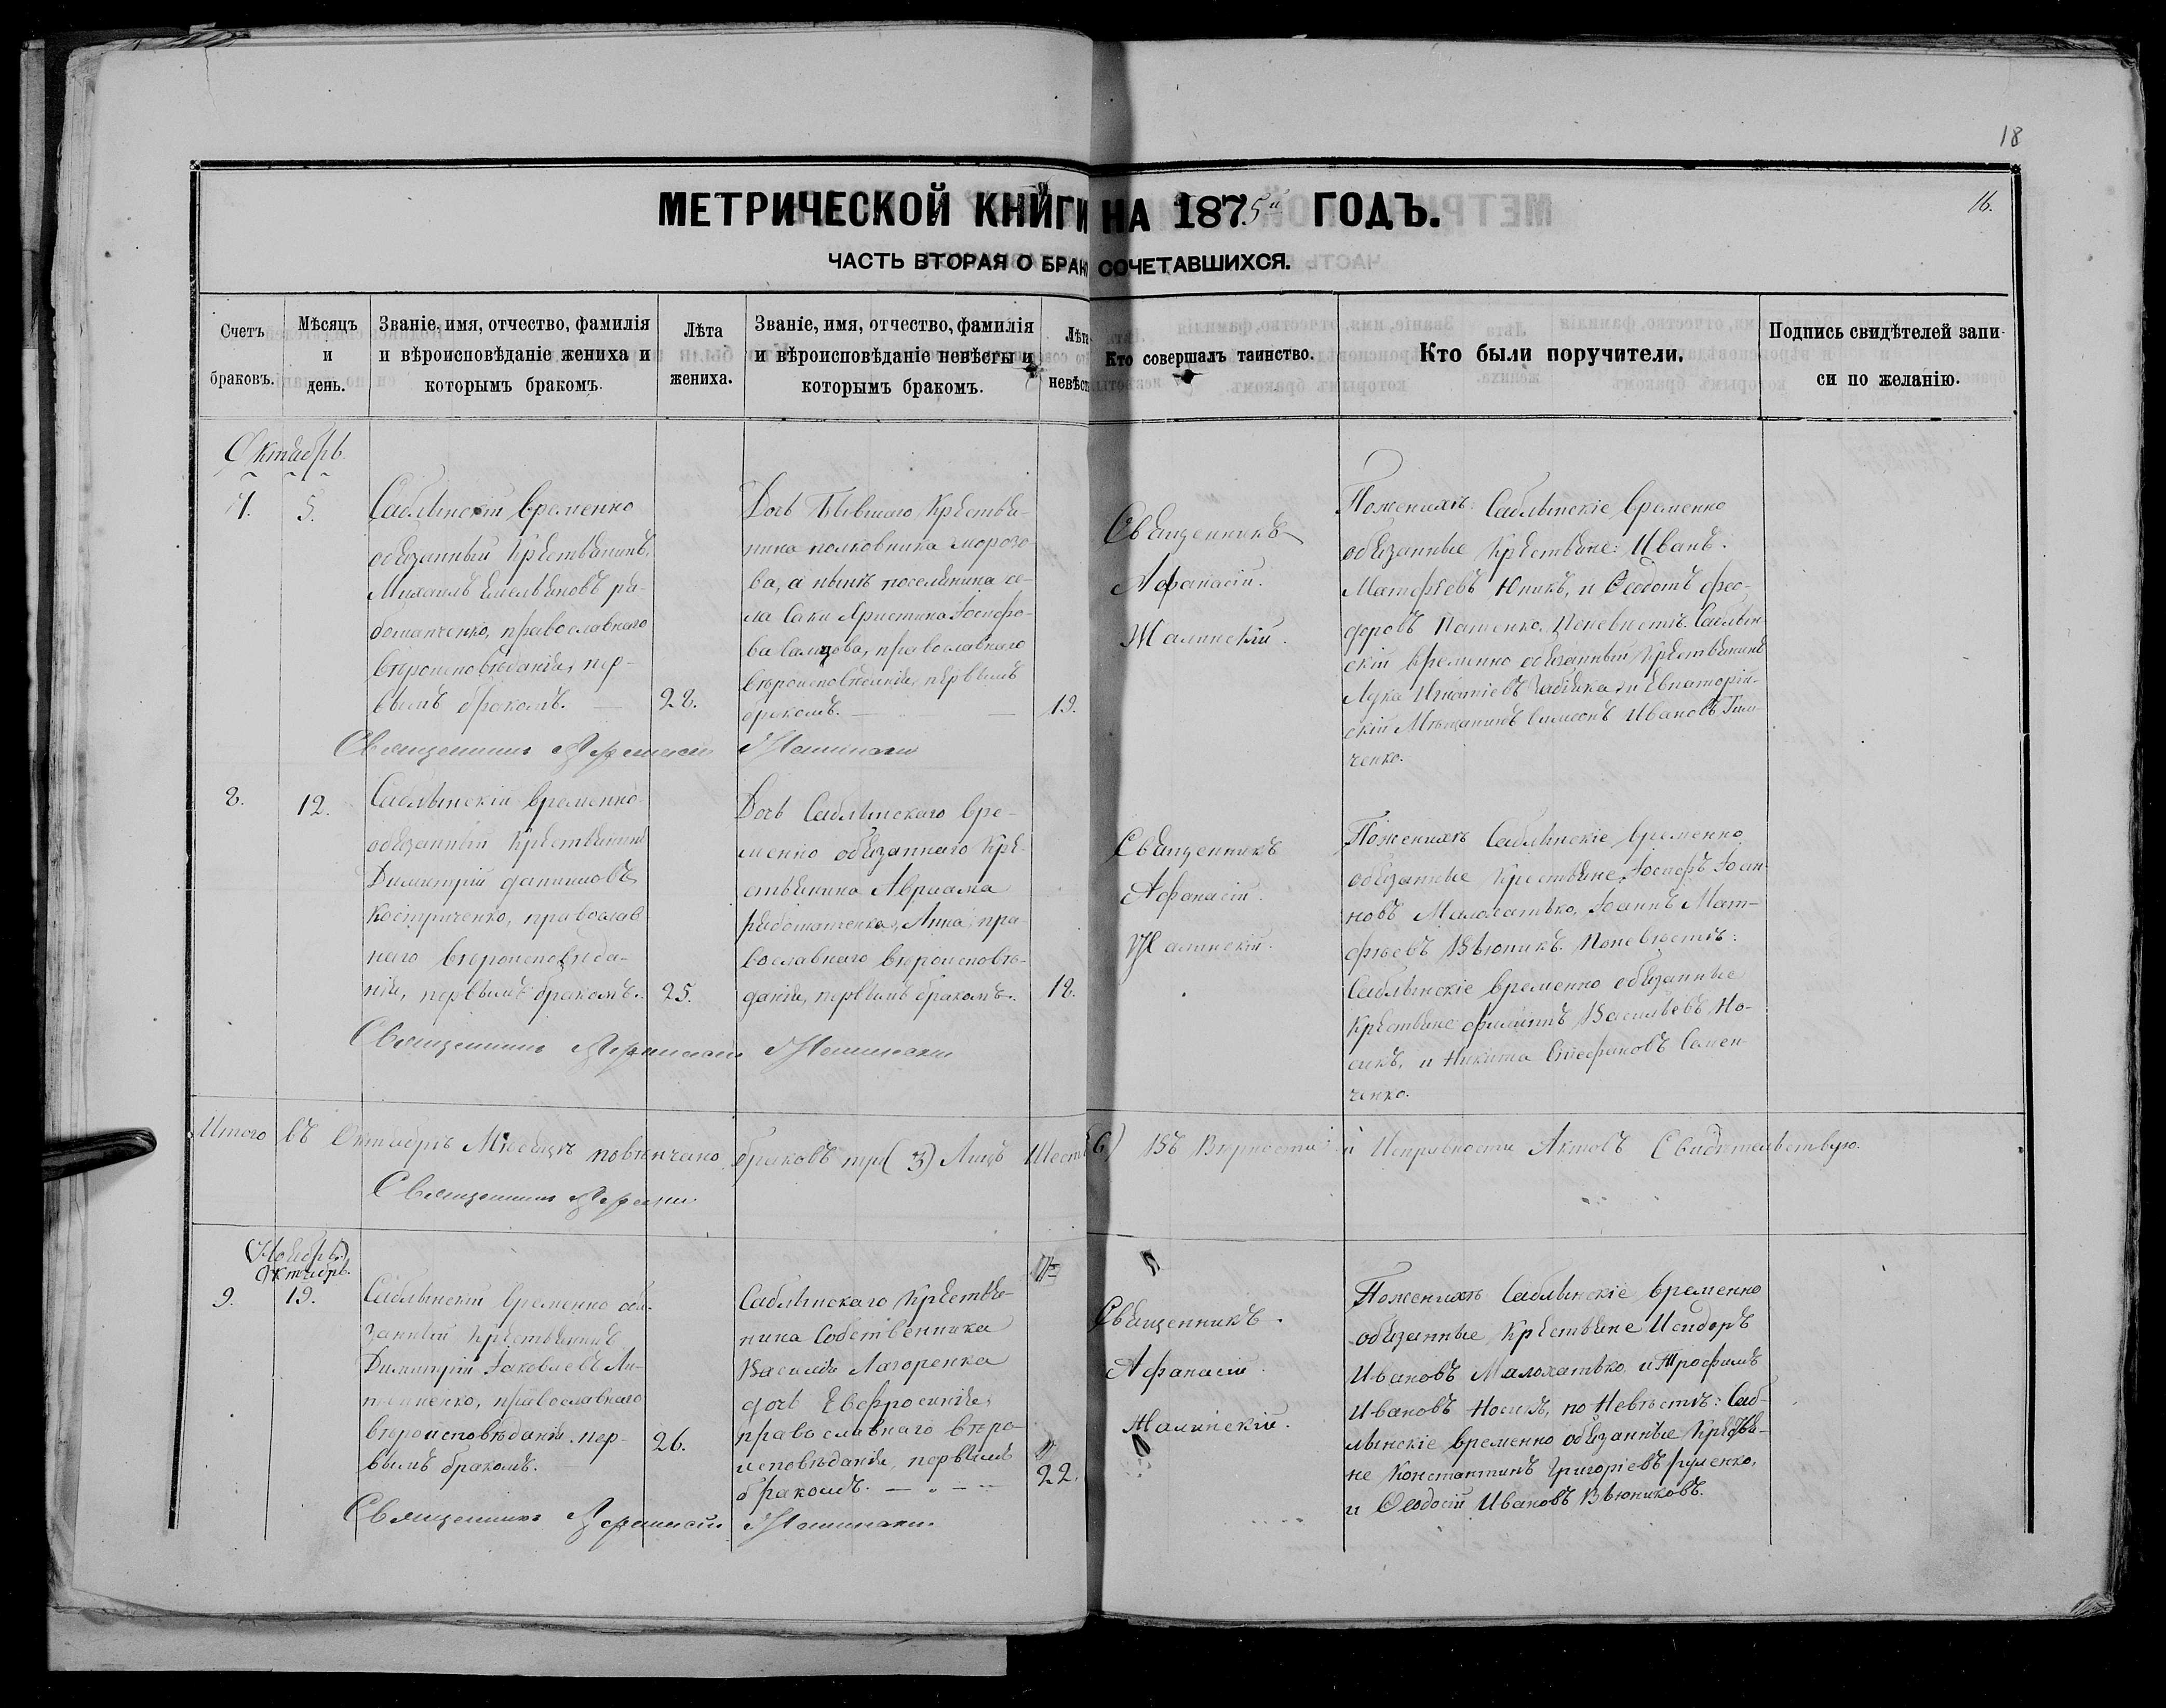 18
16.
МЕТРИЧЕСКОЙ КНИГИ НА 1875й ГОДЪ.
ЧАСТЬ ВТОРАЯ О БРАКОСОЧЕТАВШИХСЯ.
Счетъ браковъ.
Мѣсяцъ и день.
Званіе, имя, отчество, фамилія
и вѣроисповѣданіе жениха и
которымъ бракомъ.
Лѣта
жениха.
Званіе, имя, отчество, фамилія
и вѣроисповѣданіе невѣсты и
которымъ бракомъ.
Лѣта
невѣст
Кто совершалъ таинство.
Кто были поручители.
Подпись свидѣтелей запи-
си по желанію.
Октябрь
7. 5.
Саблынскій временно
обязанный Крѣстьянинъ,
Михаилъ Емельяновъ ра-
ботапченко, православнаго
вѣроисповѣданія, пер-
вымъ бракомъ. 28.
Дочь бывшаго Крѣстья-
нина полковника Морозо-
ва, а нынѣ поселянина се-
ла Саки Христина Іосифо-
ва, православнаго
вѣроисповѣданія, первымъ
бракомъ. 19.
Священникъ
Афанасій
Жалинскій.
Поженихѣ: Саблынскіе временно
обязанные Крѣстьяне: Иванъ
Матфѣевъ Юникъ, и Ѳеодотъ Фео-
доровъ Пащенко. Поневѣстѣ: Саблын-
скій временно обязанный Крѣстьянинъ
Лука Игнатіевъ и Евпаторій-
скій Мѣщанинъ Симеонъ Ивановъ Тим-
ченко.
Священникъ Афанасій Жалинскій
8. 12.
Саблынскій временно
обязанный Крѣстьянинъ
Димитрій Данииловъ
Костриченко, православ-
наго вѣроисповѣда-
нія, первымъ бракомъ. 25.
Дочь Саблынскаго вре-
менно обязаннаго Крѣ-
стьянина Авраама
работапченка, Анна, пра-
вославнаго вѣроисповѣ-
данія, первымъ бракомъ. 18.
Священникъ
Афанасій
Жалинскій.
Поженихѣ Саблынскіе временно
обязанные Крестьяне, Іосифъ Іоан-
новъ Малохатько, Іоаннъ Мат-
фѣевъ Вьюникъ. Поневѣстѣ:
Саблынскіе временно обязанные
Крѣстьяне Филиппъ Васильевъ Но-
сикъ, и Никита Стефановъ Семен-
ченко.
Священникъ Афанасій Жалинскій
Итого въ Октябрѣ Мѣсяцѣ повѣнчано браковъ три (3) Лицъ Шесть (6) Въ Вѣрности и Исправности Актовъ Свидѣтельствую.
Священникъ Афанасій
(Ноябрь)
Октябрь.
9. 19.
Саблынскій временно обя-
занный Крѣстьянинъ
Димитрій Іаковлевъ Ли-
твиненко, православнаго
вѣроисповѣданія, пер-
вымъ бракомъ. 26.
Саблынскаго Крѣстья-
нина Собственника
Василія Лагоренка
дочь Евфросинія,
православнаго вѣро-
исповѣданія, первымъ
бракомъ. 22.
Священникъ
Афанасій
Жалинскій.
Поженихѣ Саблынскіе временно
обязанные Крѣстьяне Исидоръ
Ивановъ Малохатько и Трофимъ
Ивановъ Носикъ, по Невѣстѣ: Саб-
лынскіе временно обязанные Крѣстья-
не Константинъ Григоріевъ руленко,
и Ѳеодосій Ивановъ Вьюниковъ.
Священникъ Афанасій Жалинскій